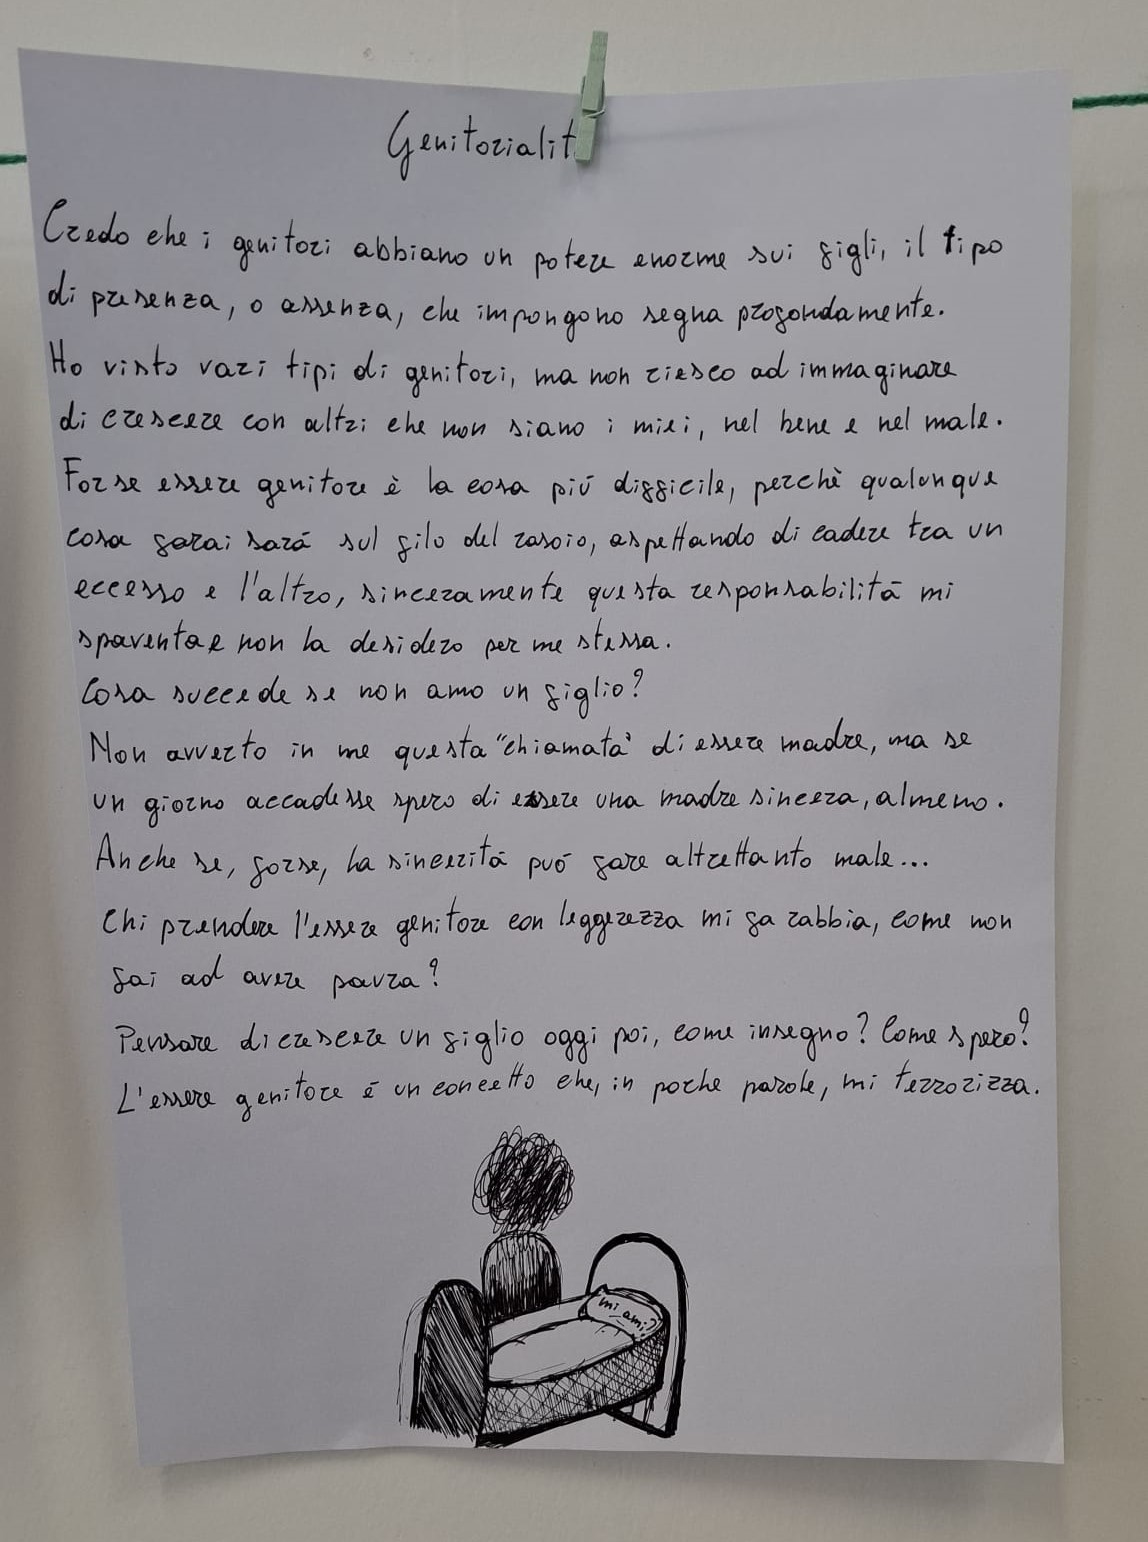 Genitorialit
Credo che i genitori abbiano un potere enorme sui figli, il tipo
di presenza, o assenza, che impongono segna profondamente.
Ho visto vari tipi di genitori, ma non riesco ad immaginare
di crescere con altri che non siano i miei, nel bene e nel male.
Forse essere genitore è la cosa più difficile, perchè qualunque
cosa farai sarà sul filo del rasoio, aspettando di cadere tra un
eccesso e l'altro, sinceramente questa responsabilità mi
spaventa e non la desidero per me stessa.
Cosa succede se non amo un figlio?
Non avverto in me questa "chiamata" di essere madre, ma se
un giorno accadesse spero di essere una madre sincera, almeno.
Anche se, forse, la sincerità può fare altrettanto male...
Chi prendere l'essere genitore con leggerezza mi fa rabbia, come non
fai ad avere paura?
Pensare di crescere un figlio oggi poi, come insegno? Come spero?
L'essere genitore é un concetto che, in poche parole, mi terrorizza.
mi ami?